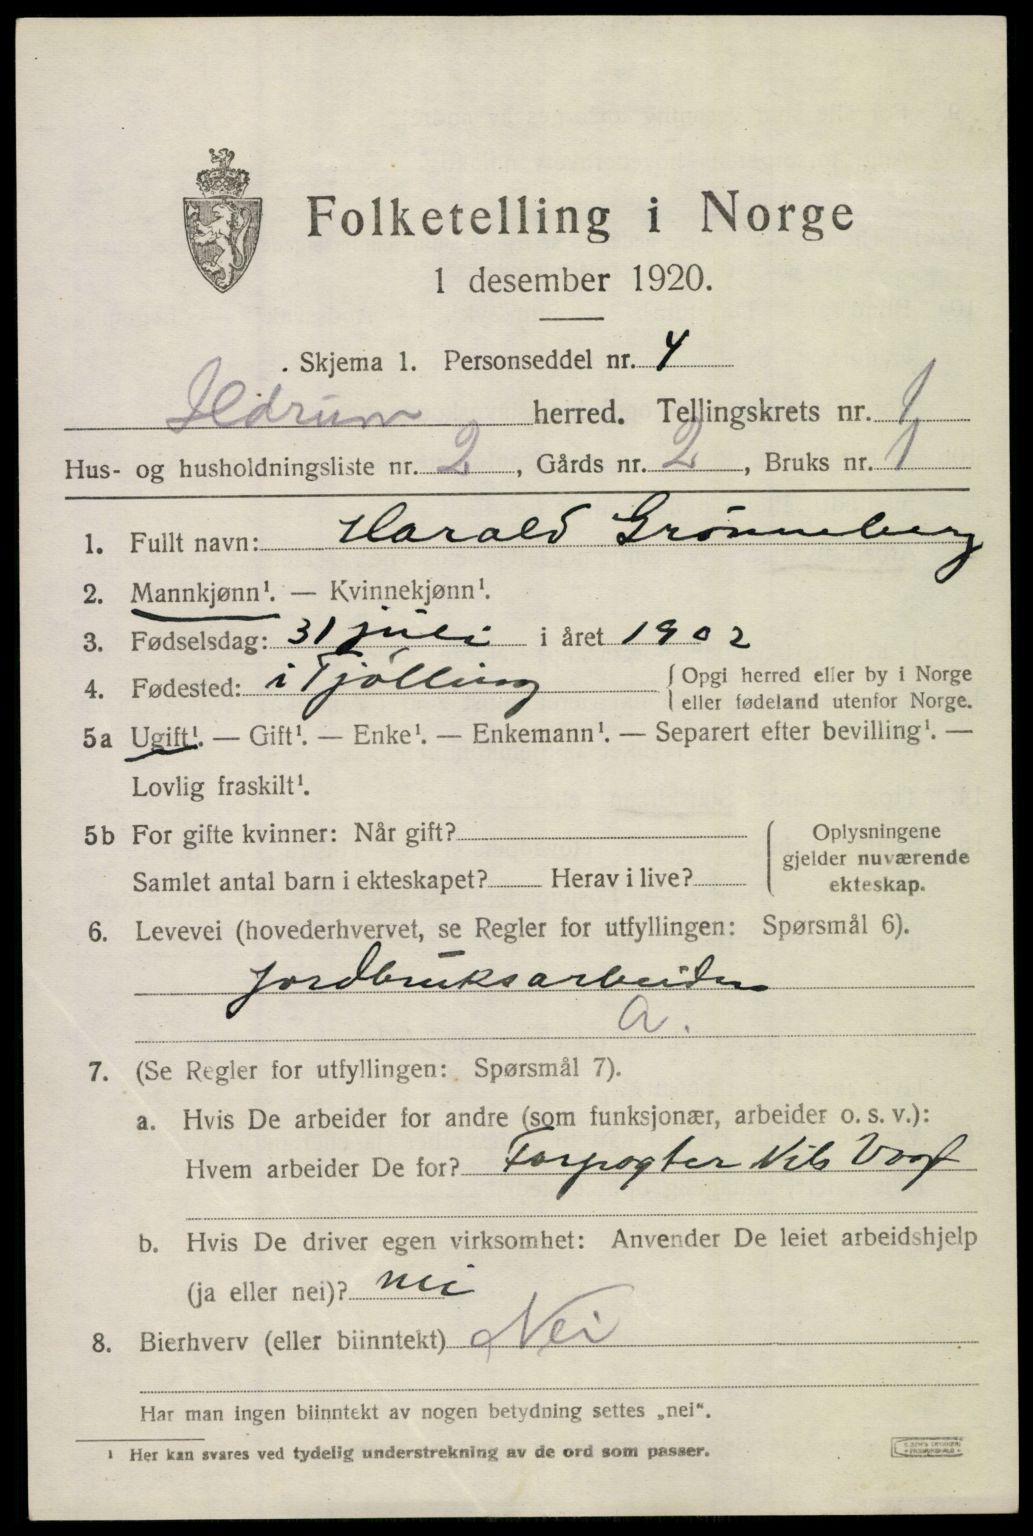 Folketelling i Norge
1 desember 1920.
Skjema 1. Personseddel nr. 4
herred. Tellingskrets nr. 1
Hus- og husholdningsliste nr. 2, Gårds nr. 2, Bruks nr. 1
1. Fullt navn: Harald Grønneberg
2. Mannkjønn¹. — Kvinnekjønn¹.
3. Fødselsdag: 31 juli i året 1902
4. Fødested: i Tjølling { Opgi herred eller by i Norge
eller fødeland utenfor Norge.
5a Ugift¹. — Gift¹. — Enke¹. — Enkemann¹. — Separert efter bevilling¹. —
Lovlig fraskilt¹.
5b For gifte kvinner: Når gift?
Samlet antal barn i ekteskapet? Herav i live?
Oplysningene
gjelder nuværende
ekteskap.
6. Levevei (hovederhvervet, se Regler for utfyllingen: Spørsmål 6).
Jordbruksarbeider
a.
7. (Se Regler for utfyllingen: Spørsmål 7).
a. Hvis De arbeider for andre (som funksjonær, arbeider o. s. v.):
Hvem arbeider De for? Forpagter Nils
b. Hvis De driver egen virksomhet: Anvender De leiet arbeidshjelp
(ja eller nei)? nei
8. Bierhverv (eller biinntekt) Nei
Har man ingen biinntekt av nogen betydning settes „nei".
¹ Her kan svares ved tydelig understrekning av de ord som passer.